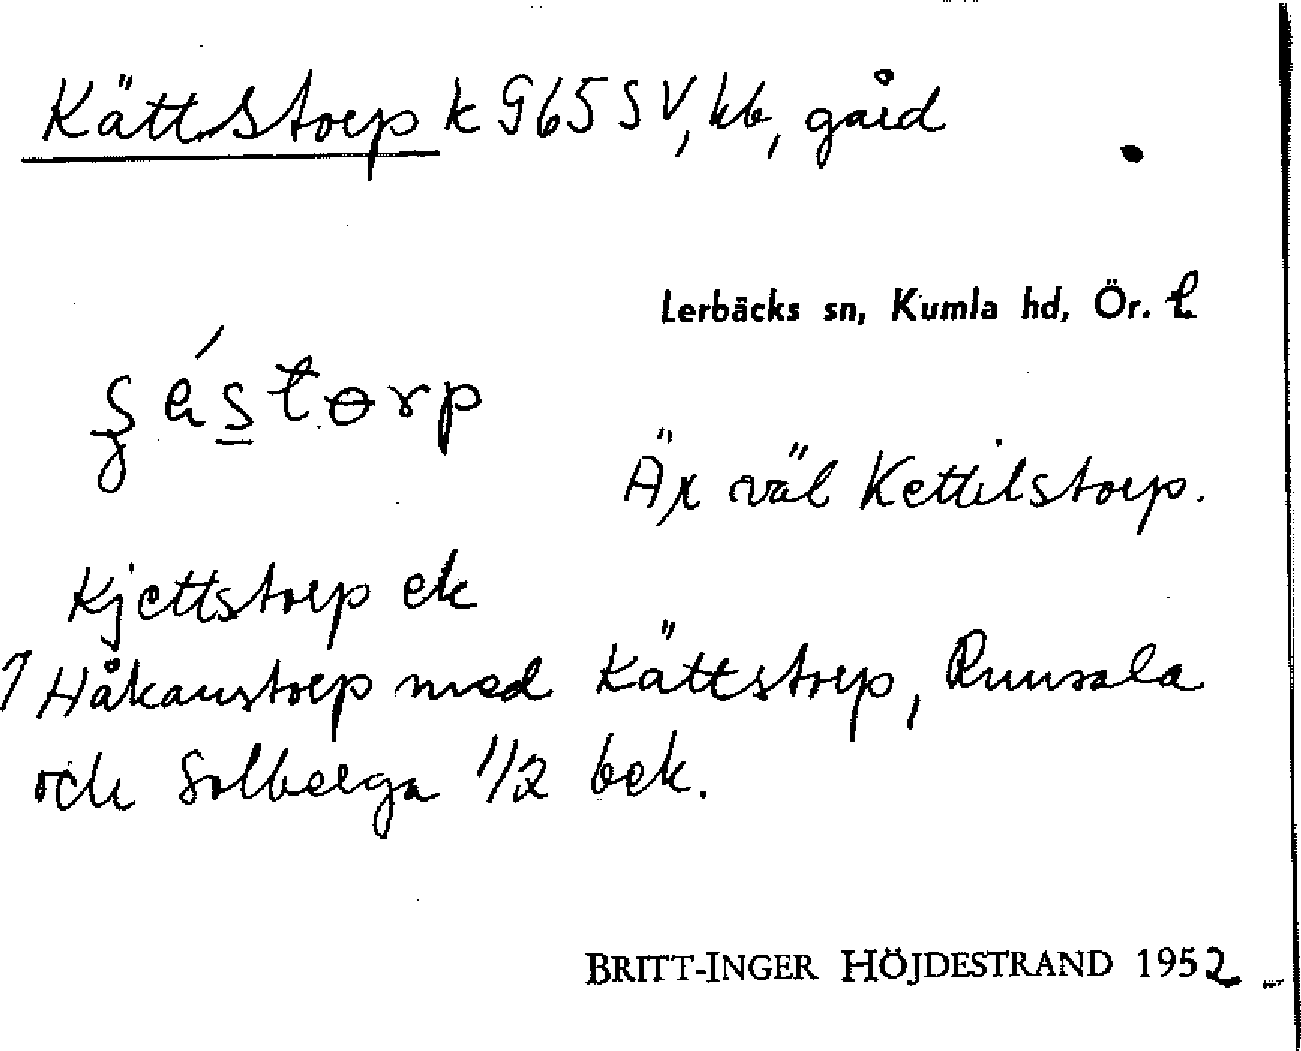 Kättstorp k G65 SV, kb, gård
Lerbäcks sn, Kumla hd, Ör. l.
Är väl Kettilstorp.
Kjettstorp ek
1 Håkanstorp med Kättstorp, Runsala
och Solberga 1/2 bek.
BRITT-INGER HÖJDESTRAND 1952